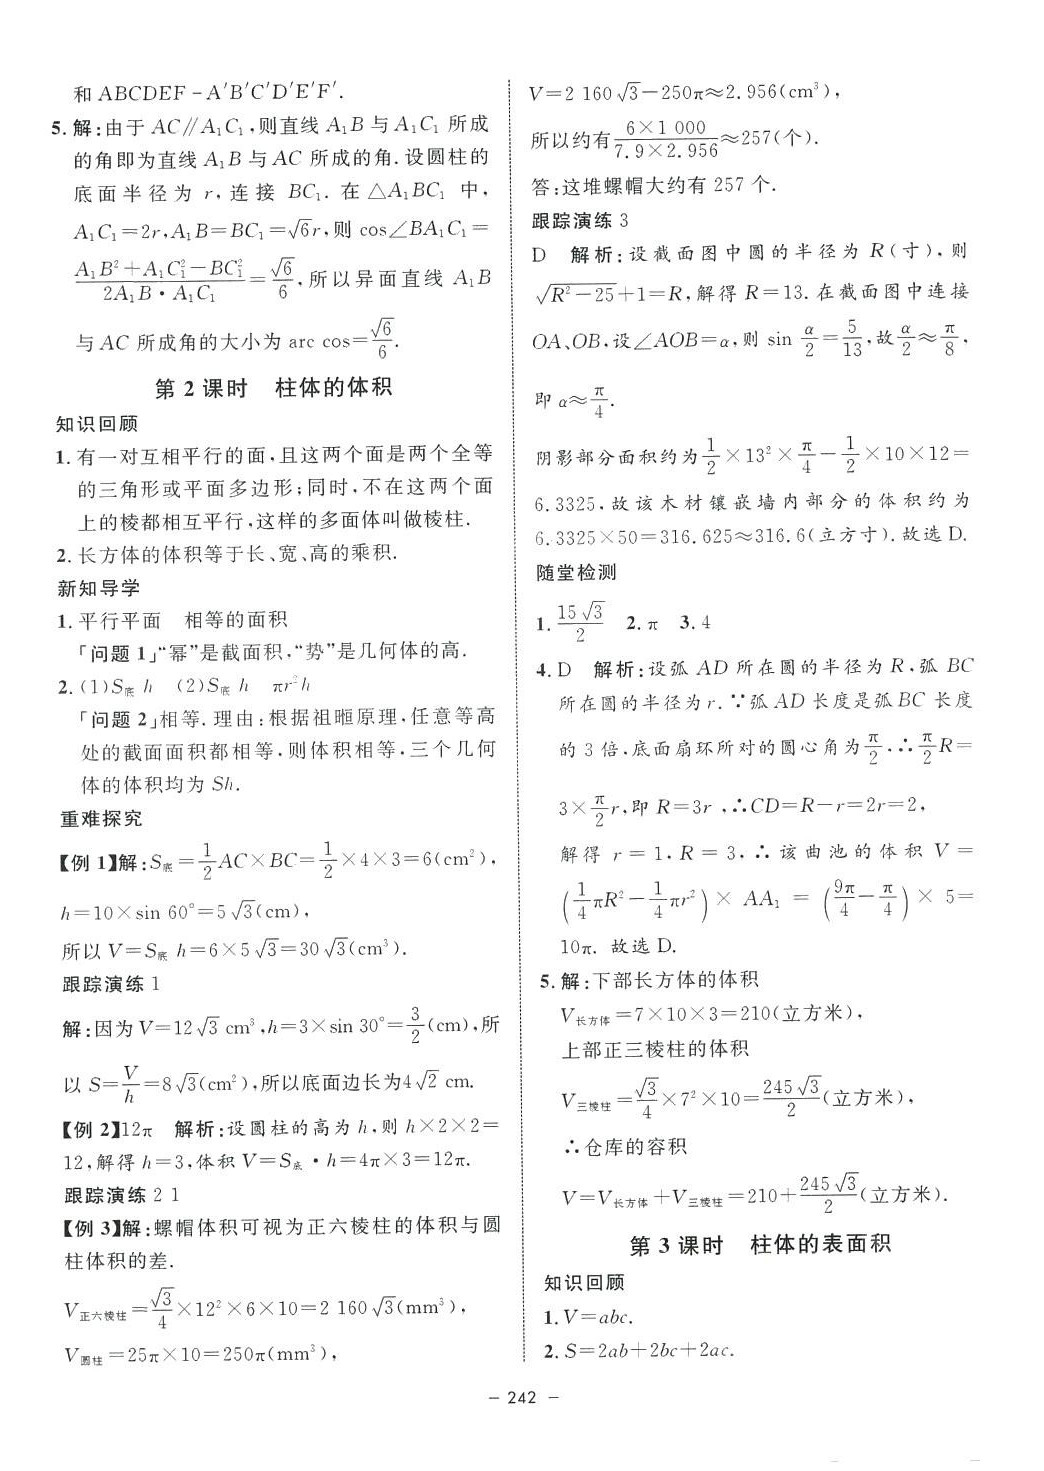 和 ABCDEF－A′B′C′D′E′F′.
5. 解:由于 AC∥A₁C₁,则直线 A₁B 与 A₁C₁ 所成
的角即为直线 A₁B 与 AC 所成的角.设圆柱的
底面半径为 r,连接 BC₁.在△A₁BC₁ 中,
A₁C₁=2r,A₁B=BC₁=√6r,则 cos∠BA₁C₁=
(A₁B²+A₁C₁²−BC₁²)/(2A₁B·A₁C₁)=√6/6,所以异面直线 A₁B
与 AC 所成角的大小为 arc cos=√6/6.
第 2 课时 柱体的体积
知识回顾
1. 有一对互相平行的面,且这两个面是两个全等
的三角形或平面多边形;同时,不在这两个面
上的棱都相互平行,这样的多面体叫做棱柱.
2. 长方体的体积等于长、宽、高的乘积.
新知导学
1. 平行平面 相等的面积
「问题 1」“幂”是截面积,“势”是几何体的高.
2. (1)S底 h (2)S底 h πr²h
「问题 2」相等.理由:根据祖暅原理,任意等高
处的截面面积都相等.则体积相等,三个几何
体的体积均为 Sh.
重难探究
【例 1】解:S底=1/2 AC×BC=1/2×4×3=6(cm²),
h=10×sin 60°=5√3(cm),
所以 V=S底 h=6×5√3=30√3(cm³).
跟踪演练 1
解:因为 V=12√3 cm³,h=3×sin 30°=3/2(cm),所
以 S=V/h=8√3(cm²),所以底面边长为4√2 cm.
【例 2】12π 解析:设圆柱的高为 h,则 h×2×2=
12,解得 h=3,体积 V=S底·h=4π×3=12π.
跟踪演练 2 1
【例 3】解:螺帽体积可视为正六棱柱的体积与圆
柱体积的差.
V正六棱柱=√3/4×12²×6×10=2 160√3(mm³),
V圆柱=25π×10=250π(mm³),
V=2 160√3−250π≈2.956(cm³),
所以约有(6×1 000)/(7.9×2.956)≈257(个).
答:这堆螺帽大约有 257 个.
跟踪演练 3
D 解析:设截面图中圆的半径为 R(寸),则
√(R²−25)+1=R,解得 R=13.在截面图中连接
OA、OB,设∠AOB=α,则 sin α/2=5/13,故 α/2≈π/8,
即 α≈π/4.
阴影部分面积约为 1/2×13²×π/4−1/2×10×12=
6.3325,故该木材镶嵌墙内部分的体积约为
6.3325×50=316.625≈316.6(立方寸).故选 D.
随堂检测
1. 15√3/2 2. π 3. 4
4. D 解析:设弧 AD 所在圆的半径为 R,弧 BC
所在圆的半径为 r.∵弧 AD 长度是弧 BC 长度
的 3 倍,底面扇环所对的圆心角为 π/2,∴π/2 R=
3×π/2 r,即 R=3r,∴CD=R−r=2r=2,
解得 r=1,R=3,∴该曲池的体积 V=
(1/4πR²−1/4πr²)×AA₁=(9π/4−π/4)×5=
10π.故选 D.
5. 解:下部长方体的体积
V长方体=7×10×3=210(立方米),
上部正三棱柱的体积
V三棱柱=√3/4×7²×10=245√3/2(立方米),
∴仓库的容积
V=V长方体+V三棱柱=210+245√3/2(立方米).
第 3 课时 柱体的表面积
知识回顾
1. V=abc.
2. S=2ab+2bc+2ac.
－ 242 －